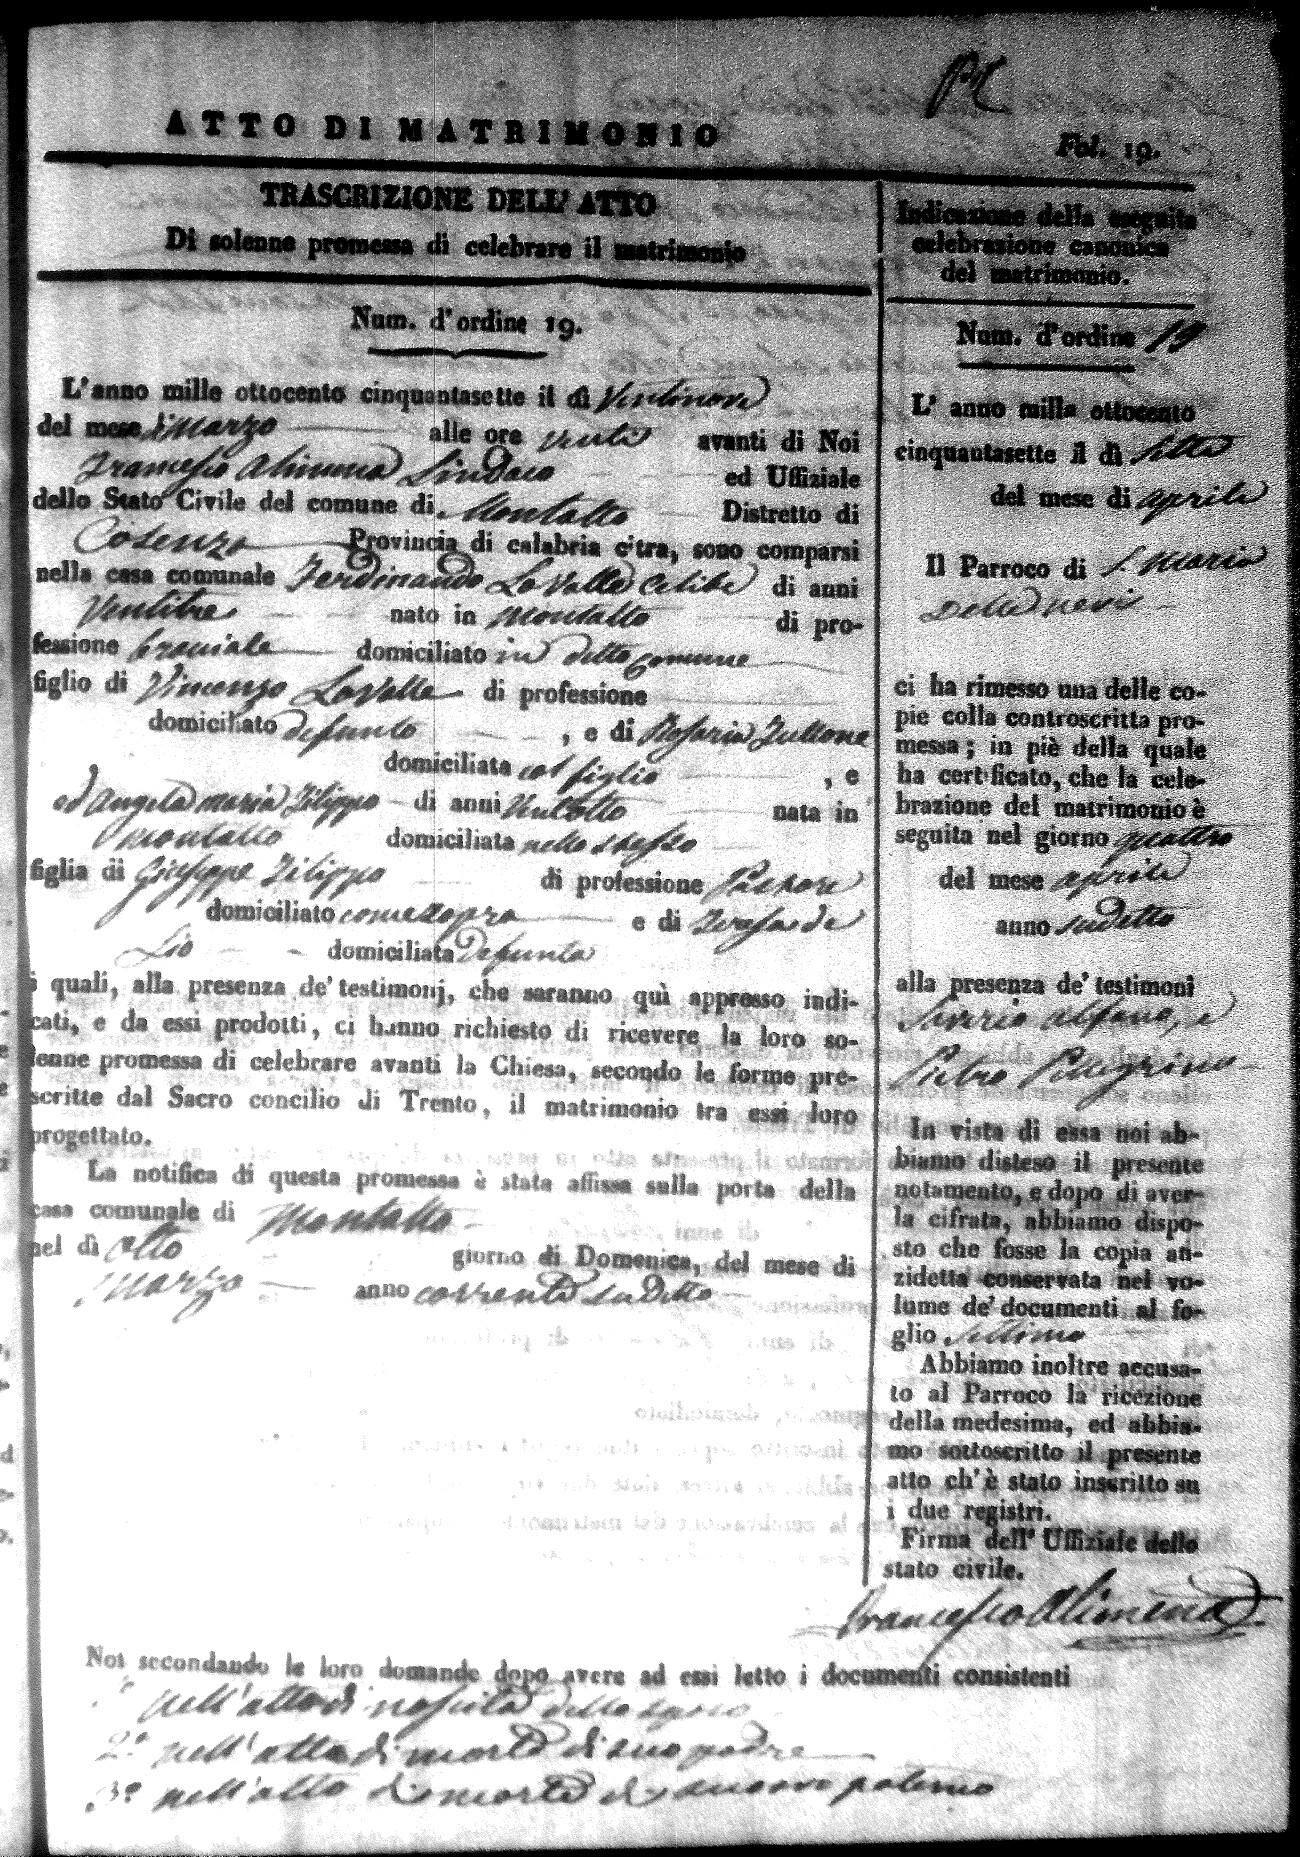 PC
ATTO DI MATRIMONIO
Fol. 19.
TRASCRIZIONE DELL' ATTO
Di solenne promessa di celebrare il matrimonio
Num. d' ordine 19.
L' anno mille ottocento cinquantasette il dì Ventinove
del mese di Marzo alle ore venti avanti di Noi
Francesco Alimena Sindaco ed Uffiziale
dello Stato Civile del comune di Montalto Distretto di
Cosenza Provincia di calabria citra, sono comparsi
nella casa comunale Ferdinando La Valle celibe di anni
Ventitre nato in Montalto di pro-
fessione bracciale domiciliato in detto Comune
figlio di Vincenzo La Valle di professione
domiciliato defunto , e di Rosaria
domiciliata col figlio , e
ed Angela Maria Filippo di anni ventotto nata in
Montalto domiciliata nello stesso
figlia di Giuseppe Filippo di professione
domiciliato come sopra e di Teresa de
Lio domiciliata defunta
i quali, alla presenza de' testimonj, che saranno quì appresso indi-
cati, e da essi prodotti, ci hanno richiesto di ricevere la loro so-
lenne promessa di celebrare avanti la Chiesa, secondo le forme pre-
scritte dal Sacro concilio di Trento, il matrimonio tra essi loro
progettato.
La notifica di questa promessa è stata affissa sulla porta della
casa comunale di Montalto
nel dì otto giorno di Domenica, del mese di
Marzo anno corrente suddetto
Noi secondando le loro domande dopo avere ad essi letto i documenti consistenti
1° nell'atto di nascita dello sposo
2° nell'atto di morte di suo padre
3° nell'atto di morte di suo avo paterno
Indicazione della eseguita
celebrazione canonica
del matrimonio.
Num. d' ordine 19
L' anno milla ottocento
cinquantasette il dì sette
del mese di aprile
Il Parroco di S. Maria
della neve
ci ha rimesso una delle co-
pie colla controscritta pro-
messa; in piè della quale
ha certificato, che la cele-
brazione del matrimonio è
seguita nel giorno quattro
del mese aprile
anno sudetto
alla presenza de' testimoni
Saverio Alfano, e
Pietro Pellegrino
In vista di essa noi ab-
biamo disteso il presente
notamento, e dopo di aver-
la cifrata, abbiamo dispo-
sto che fosse la copia an-
zidetta conservata nel vo-
lume de' documenti al fo-
glio settimo
Abbiamo inoltre accusa-
to al Parroco la ricezione
della medesima, ed abbia-
mo sottoscritto il presente
atto ch' è stato inscritto su
i due registri.
Firma dell' Uffiziale dello
stato civile.
Francesco Alimena